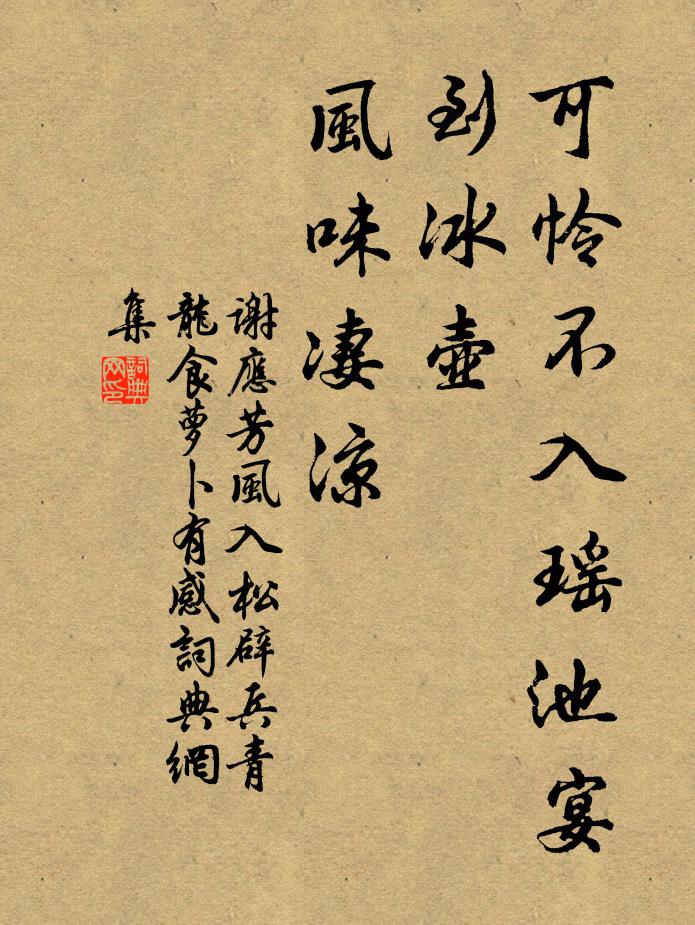 可怜不入瑶池宴
到冰壺
風味凄凉
謝應芳風入松辟兵青
龍食萝卜有感詞典網
集
詞典
网印